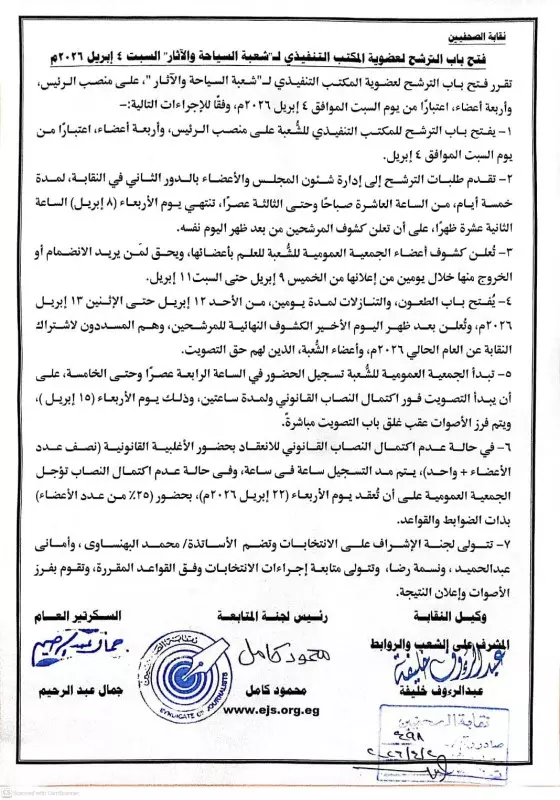 نقابة الصحفيين
فتح باب الترشح لعضوية المكتب التنفيذي لـ"شعبة السياحة والآثار" السبت ٤ إبريل ٢٠٢٦م
تقرر فتح باب الترشح لعضوية المكتب التنفيذي لـ"شعبة السياحة والآثار "، على منصب الرئيس،
وأربعة أعضاء، اعتبارًا من يوم السبت الموافق ٤ إبريل ٢٠٢٦م، وفقًا للإجراءات التالية:-
١- يفتح باب الترشح للمكتب التنفيذي للشُّعبة على منصب الرئيس، وأربعة أعضاء، اعتبارًا من
يوم السبت الموافق ٤ إبريل.
٢- تقدم طلبات الترشح إلى إدارة شئون المجلس والأعضاء بالدور الثاني في النقابة، لمدة
خمسة أيام، من الساعة العاشرة صباحًا وحتى الثالثة عصرًا، تنتهي يوم الأربعاء (٨ إبريل) الساعة
الثانية عشرة ظهرًا، على أن تعلن كشوف المرشحين من بعد ظهر اليوم نفسه.
٣- تُعلن كشوف أعضاء الجمعية العمومية للشُّعبة للعلم بأعضائها، ويحق لمَن يريد الانضمام أو
الخروج منها خلال يومين من إعلانها من الخميس ٩ إبريل حتى السبت١١ إبريل.
٤- يُفتح باب الطعون، والتنازلات لمدة يومين، من الأحد ١٢ إبريل حتى الإثنين ١٣ إبريل
٢٠٢٦م، وتُعلن بعد ظهر اليوم الأخير الكشوف النهائية للمرشحين، وهم المسددون لاشتراك
النقابة عن العام الحالي ٢٠٢٦م، وأعضاء الشُّعبة، الذين لهم حق التصويت.
٥- تبدأ الجمعية العمومية للشُّعبة تسجيل الحضور في الساعة الرابعة عصرًا وحتى الخامسة، على
أن يبدأ التصويت فور اكتمال النصاب القانوني ولمدة ساعتين، وذلك يوم الأربعاء (١٥ إبريل )،
ويتم فرز الأصوات عقب غلق باب التصويت مباشرةً.
٦- في حالة عدم اكتمال النصاب القانوني للانعقاد بحضور الأغلبية القانونية (نصف عدد
الأعضاء + واحد)، يتم مد التسجيل ساعة فى ساعة، وفى حالة عدم اكتمال النصاب تؤجل
الجمعية العمومية على أن تُعقد يوم الأربعاء (٢٢ إبريل ٢٠٢٦م)، بحضور (٢٥٪ من عدد الأعضاء)
بذات الضوابط والقواعد.
٧- تتولى لجنة الإشراف على الانتخابات وتضم الأساتذة/ محمد البهنساوى، وأمانى
عبدالحميد ، ونسمة رضا، وتتولى متابعة إجراءات الانتخابات وفق القواعد المقررة، وتقوم بفرز
الأصوات وإعلان النتيجة.
وكيل النقابة رئيس لجنة المتابعة السكرتير العام
المشرف على الشعب والروابط
عبدالرءوف خليفة محمود كامل جمال عبدالرحيم
عبدالرءوف خليفة محمود كامل جمال عبد الرحيم
SYNDICATE OF JOURNALISTS
www.ejs.org.eg
نقابة الصحفيين
٤٩٨
صادر
٢٠٢٦/٤/٢
Scanned with CamScanner